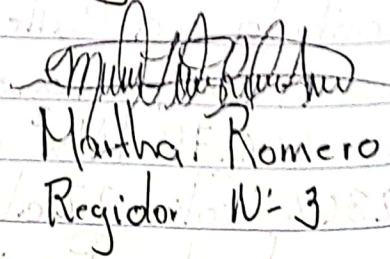 Martha. Romero
Regidor. Nº 3